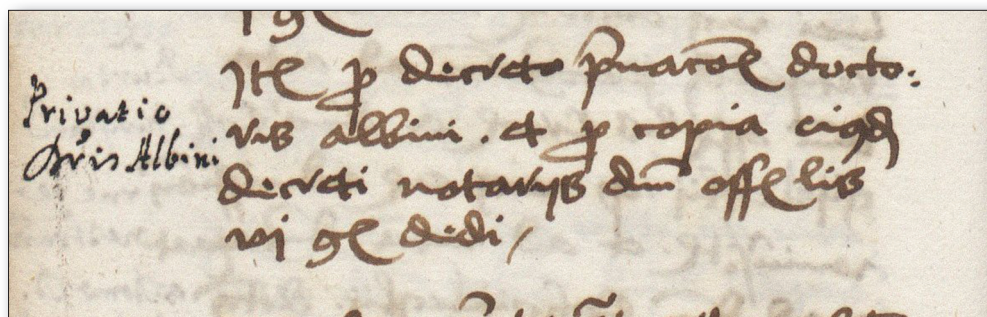 Privatio
dris Albini
Jtē ꝓ decreto p̄uacōē docto:
ris albini . et ꝓ copia eiꝰdē
decreti notarijs dm̄ offēlis
vj gē dedi /